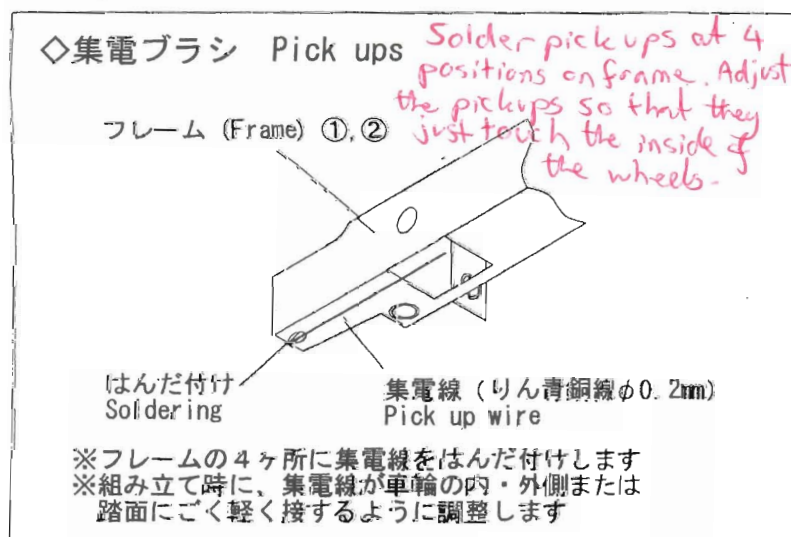 ◇集電ブラシ Pick ups
Solder pick ups at 4
positions on frame. Adjust
the pickups so that they
just touch the inside of
the wheels.
フレーム (Frame) ①,②
はんだ付け
Soldering
集電線 (りん青銅線φ0.2mm)
Pick up wire
※フレームの4ヶ所に集電線をはんだ付けします
※組み立て時に、集電線が車輪の内・外側または
踏面にごく軽く接するように調整します